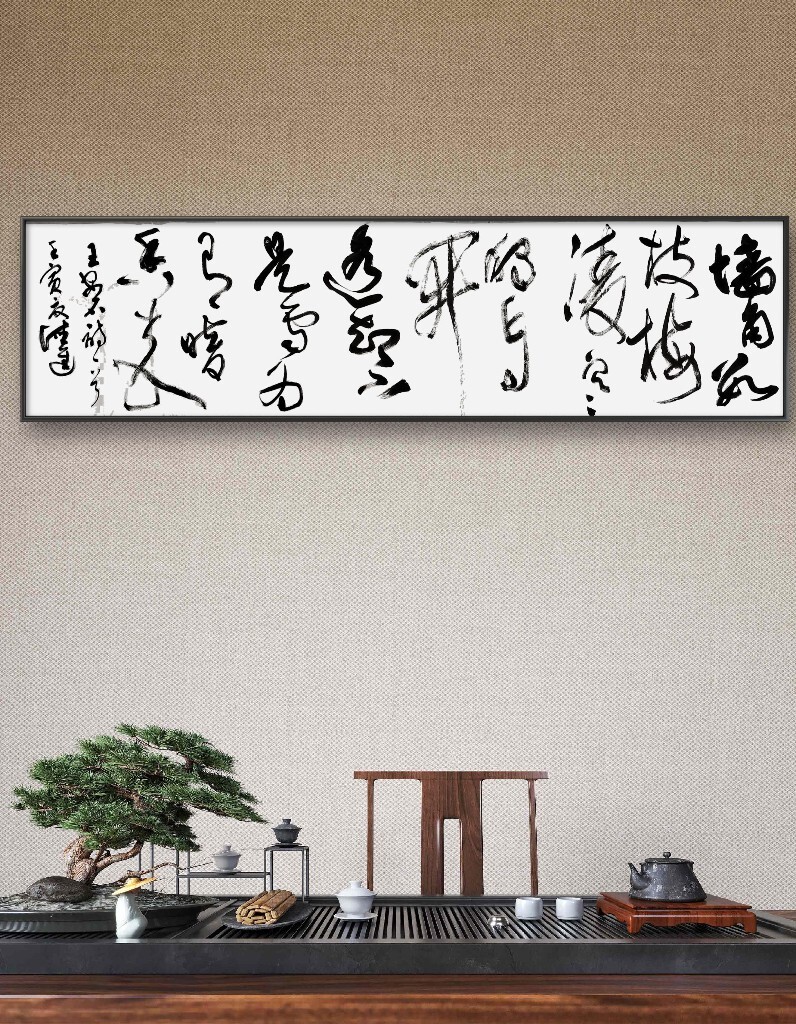 墙角数
枝梅
凌寒
独自
開
遥知不
是雪为
有暗
香来
王安石诗一首
壬寅